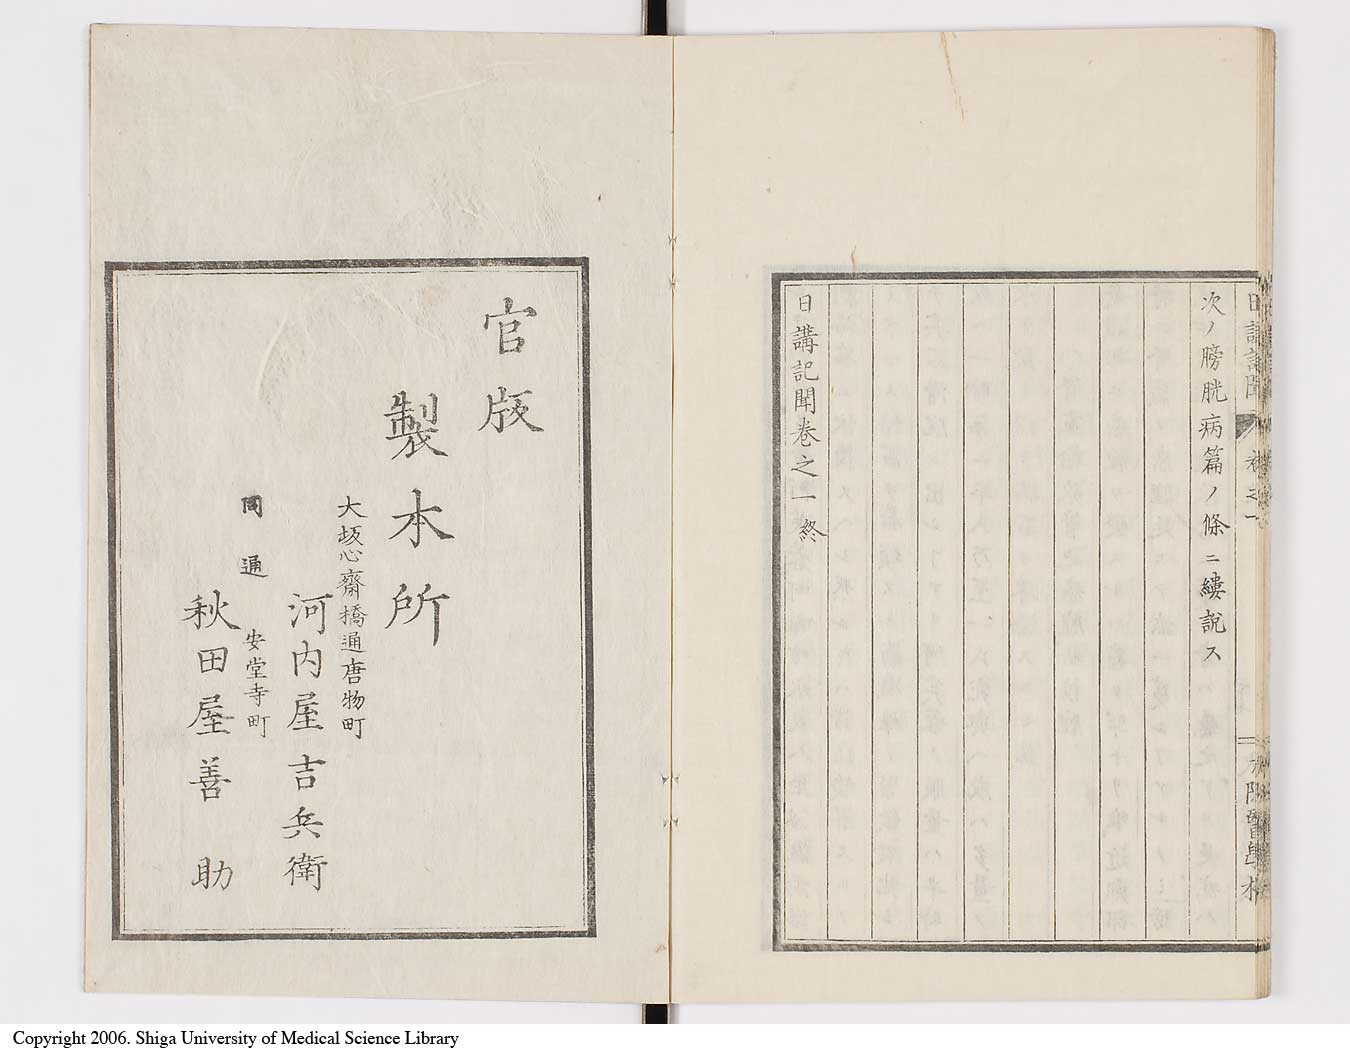 日講記聞
卷之一
大阪醫學校
次ノ膀胱病篇ノ條ニ縷説ス
日講記聞卷之一終
官版
製本所
大坂心齋橋通唐物町
河内屋吉兵衛
同通
安堂寺町
秋田屋善助
Copyright 2006. Shiga University of Medical Science Library